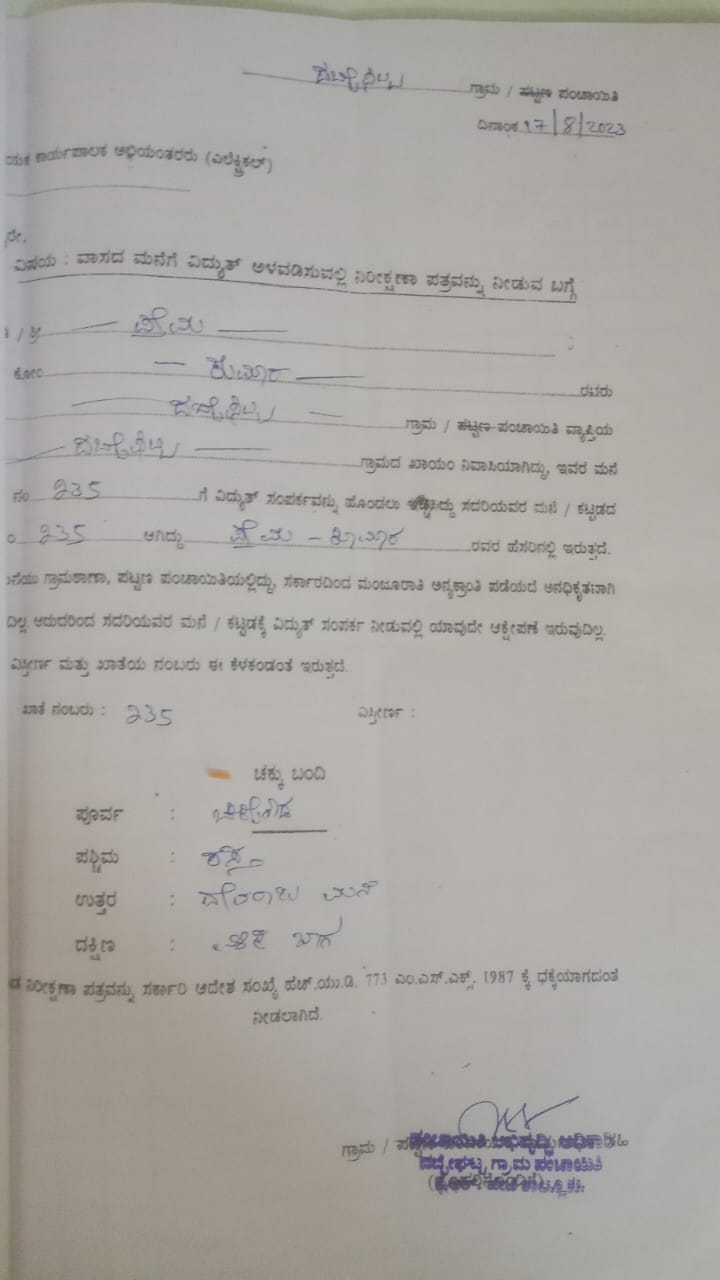 ಗ್ರಾಮ / ಪಟ್ಟಣ ಪಂಚಾಯಿತಿ
ದಿನಾಂಕ 17/8/2023
ಯಕ ಕಾರ್ಯಪಾಲಕ ಅಭಿಯಂತರರು (ಎಲೆಕ್ಟ್ರಿಕಲ್)
ರೇ,
ವಿಷಯ : ವಾಸದ ಮನೆಗೆ ವಿದ್ಯುತ್ ಅಳವಡಿಸುವಲ್ಲಿ ನಿರೀಕ್ಷಣಾ ಪತ್ರವನ್ನು ನೀಡುವ ಬಗ್ಗೆ
/ ಶ್ರೀ ಪ್ರೇಮ
ಕೋಂ ಕುಮಾರ ರವರು
ಗ್ರಾಮ / ಪಟ್ಟಣ ಪಂಚಾಯಿತಿ ವ್ಯಾಪ್ತಿಯ
ಗ್ರಾಮದ ಖಾಯಂ ನಿವಾಸಿಯಾಗಿದ್ದು, ಇವರ ಮನೆ
ನಂ 235 ಗೆ ವಿದ್ಯುತ್ ಸಂಪರ್ಕವನ್ನು ಹೊಂದಲು ಇಚ್ಛಿಸಿದ್ದು ಸದರಿಯವರ ಮನೆ / ಕಟ್ಟಡದ
ಂ 235 ಆಗಿದ್ದು ಪ್ರೇಮ - ಕುಮಾರ ರವರ ಹೆಸರಿನಲ್ಲಿ ಇರುತ್ತದೆ.
ನೆಯು ಗ್ರಾಮಠಾಣಾ, ಪಟ್ಟಣ ಪಂಚಾಯಿತಿಯಲ್ಲಿದ್ದು, ಸರ್ಕಾರದಿಂದ ಮಂಜೂರಾತಿ ಅನ್ಯಕ್ರಾಂತಿ ಪಡೆಯದೆ ಅನಧಿಕೃತವಾಗಿ
ದಿಲ್ಲ ಆದುದರಿಂದ ಸದರಿಯವರ ಮನೆ / ಕಟ್ಟಡಕ್ಕೆ ವಿದ್ಯುತ್ ಸಂಪರ್ಕ ನೀಡುವಲ್ಲಿ ಯಾವುದೇ ಆಕ್ಷೇಪಣೆ ಇರುವುದಿಲ್ಲ.
ವಿಸ್ತೀರ್ಣ ಮತ್ತು ಖಾತೆಯ ನಂಬರು ಈ ಕೆಳಕಂಡಂತೆ ಇರುತ್ತದೆ.
ಖಾತೆ ನಂಬರು : 235 ವಿಸ್ತೀರ್ಣ :
ಚಕ್ಕು ಬಂದಿ
ಪೂರ್ವ :
ಪಶ್ಚಿಮ : ರಸ್ತೆ
ಉತ್ತರ : ದೇವರಾಜು ಮನೆ
ದಕ್ಷಿಣ : ಜಾಗ
ನಿರೀಕ್ಷಣಾ ಪತ್ರವನ್ನು ಸರ್ಕಾರಿ ಆದೇಶ ಸಂಖ್ಯೆ ಹೆಚ್.ಯು.ಡಿ. 773 ಎಂ.ಎಸ್.ಎಕ್ಸ್. 1987 ಕ್ಕೆ ಧಕ್ಕೆಯಾಗದಂತೆ
ನೀಡಲಾಗಿದೆ.
ಗ್ರಾಮ /
ಪಂಚಾಯಿತಿ ಅಭಿವೃದ್ಧಿ ಅಧಿಕಾರಿ
ಗ್ರಾಮ ಪಂಚಾಯಿತಿ